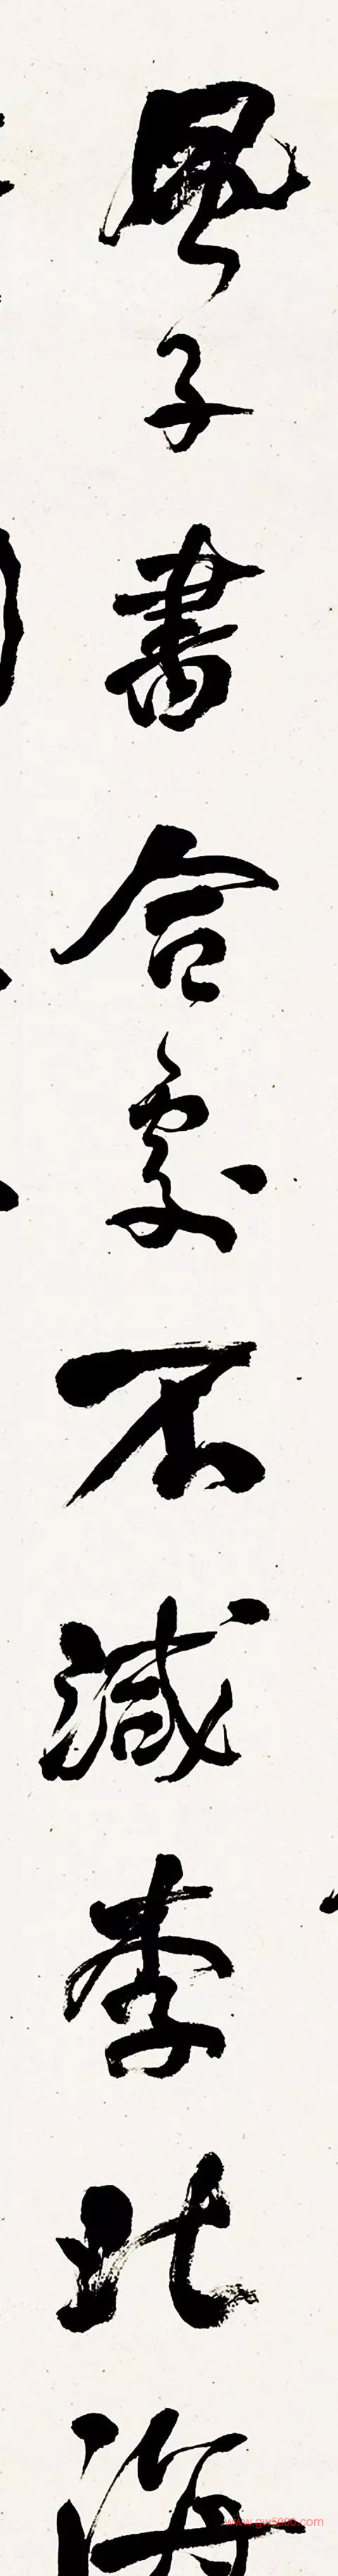 風子書合處不減李北海
www.gw5200.com